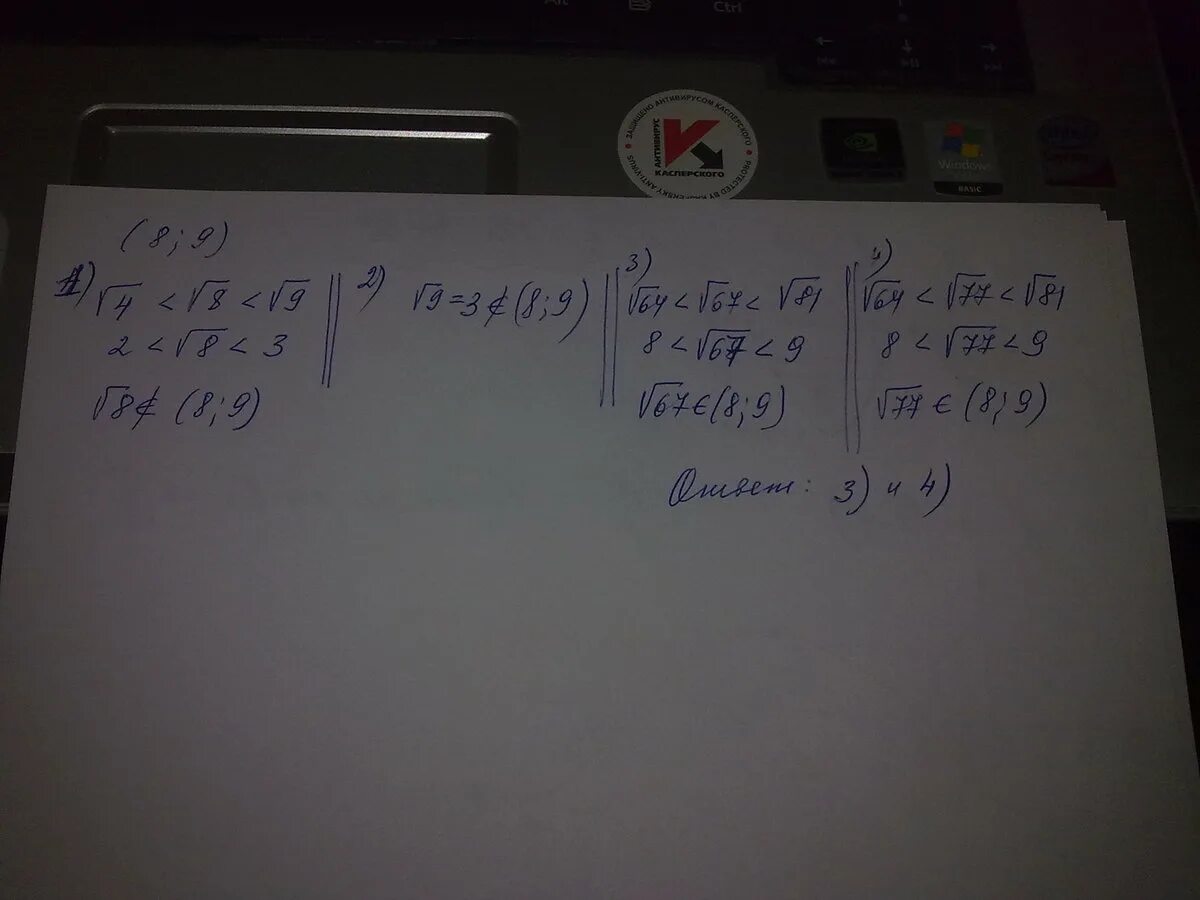 Alt
Ctrl
ЗАЩИЩЕНО АНТИВИРУСОМ КАСПЕРСКОГО
АНТИВИРУС
КАСПЕРСКОГО
PROTECTED BY KASPERSKY ANTI-VIRUS
Windows
BASIC
(8; 9)
1)
√4 < √8 < √9
2 < √8 < 3
√8 ∉ (8; 9)
2)
√9 = 3 ∉ (8; 9)
3)
√64 < √67 < √81
8 < √67 < 9
√67 ∈ (8; 9)
4)
√64 < √77 < √81
8 < √77 < 9
√77 ∈ (8; 9)
Ответ: 3) и 4)